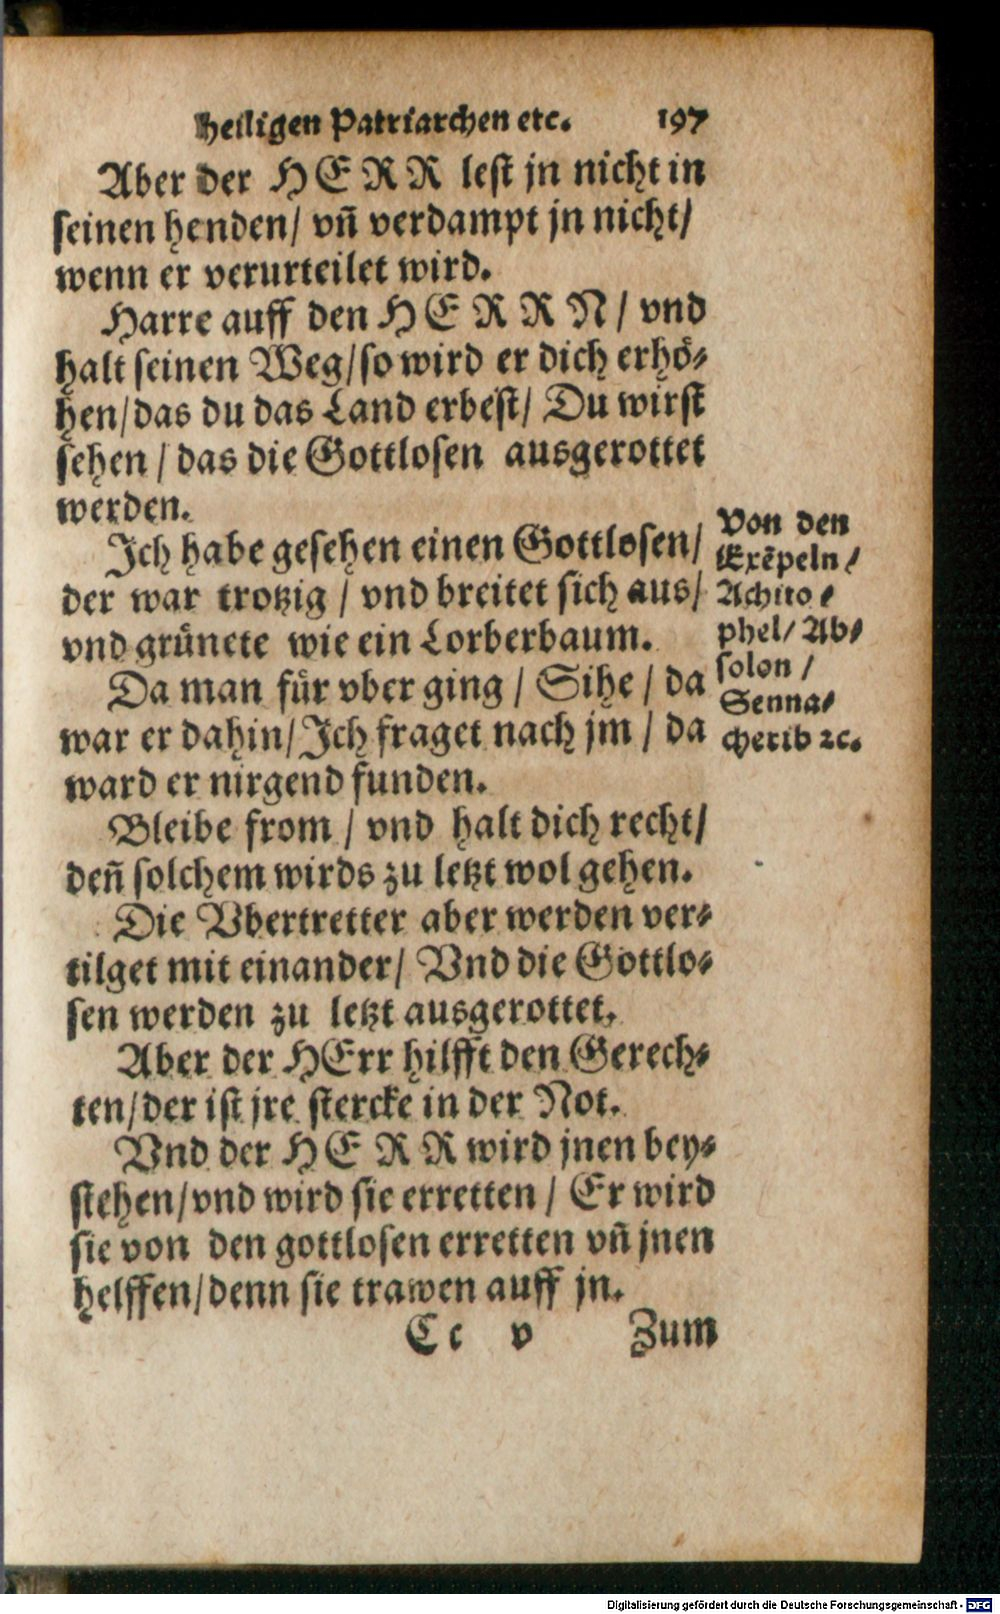 heiligen Patriarchen etc. 197
Aber der HERR lest jn nicht in
seinen henden/ vn̄ verdampt jn nicht/
wenn er verurteilet wird.
Harre auff den HERRN/ vnd
halt seinen Weg/so wird er dich erhö⸗
hen/das du das Land erbest/ Du wirst
sehen / das die Gottlosen ausgerottet
werden.
Ich habe gesehen einen Gottlosen/
der war trotzig / vnd breitet sich aus/
vnd grünete wie ein Lorberbaum.
Da man für vber ging / Sihe / da
war er dahin/ Ich fraget nach jm / da
ward er nirgend funden.
Von den
Exēpeln/
Achito⸗
phel/ Ab⸗
solon /
Senna⸗
cherib ꝛc.
Bleibe from / vnd halt dich recht/
den̄ solchem wirds zu letzt wol gehen.
Die Vbertretter aber werden ver⸗
tilget mit einander/ Vnd die Gottlo⸗
sen werden zu letzt ausgerottet.
Aber der HErr hilfft den Gerech⸗
ten/der ist jre stercke in der Not.
Vnd der HERR wird jnen bey⸗
stehen/vnd wird sie erretten / Er wird
sie von den gottlosen erretten vn̄ jnen
helffen/denn sie trawen auff jn.
Cc v Zum
Digitalisierung gefördert durch die Deutsche Forschungsgemeinschaft - DFG